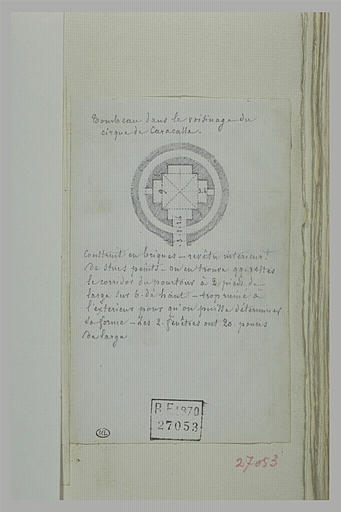 Tombeau dans le voisinage du
cirque de Caracalla.
Construit en briques – revêtu intérieur.t
de stucs peints – on en trouve qq. restes
le corridor du pourtour a 3. pieds de
large sur 6. de haut – trop ruiné à
l'extérieur pour qu'on puisse déterminer
sa forme – Les 2. fenêtres ont 20. pouces
de large
R.F 1870
27053
27053